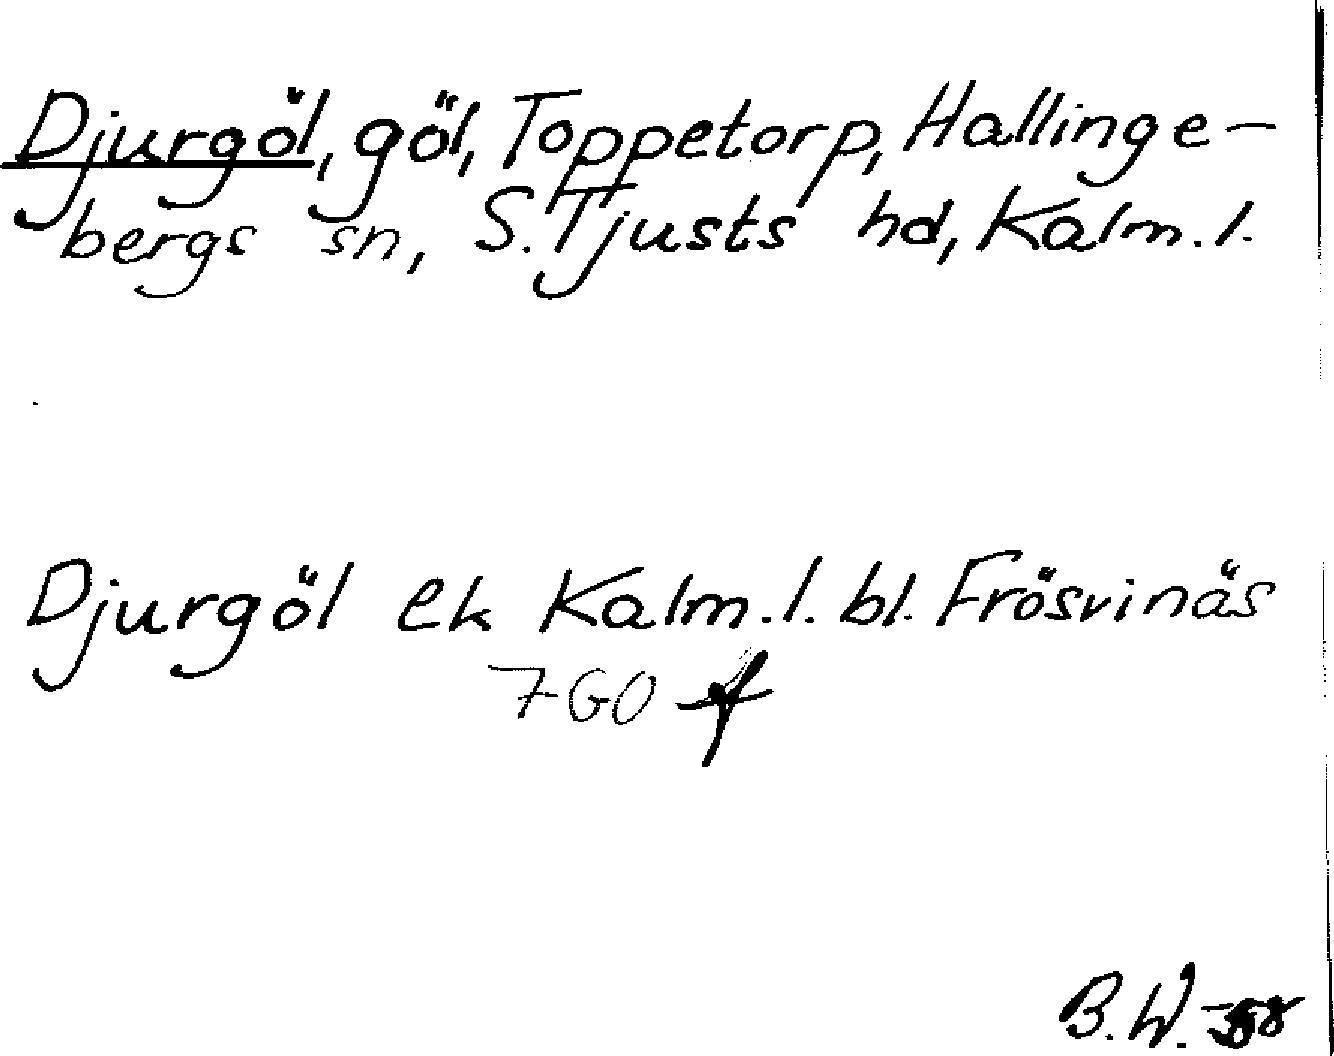 Djurgöl, göl, Toppetorp, Hallinge-
bergs sn, S. Tjusts hd, Kalm. l.
Djurgöl ek Kalm. l. bl. Frösvinäs
7GO f
B.W. -58